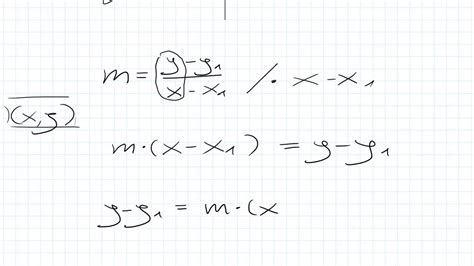 m = \frac{y - y_1}{x - x_1} / · x - x_1
)(x, y)
m · (x - x_1) = y - y_1
y - y_1 = m · (x